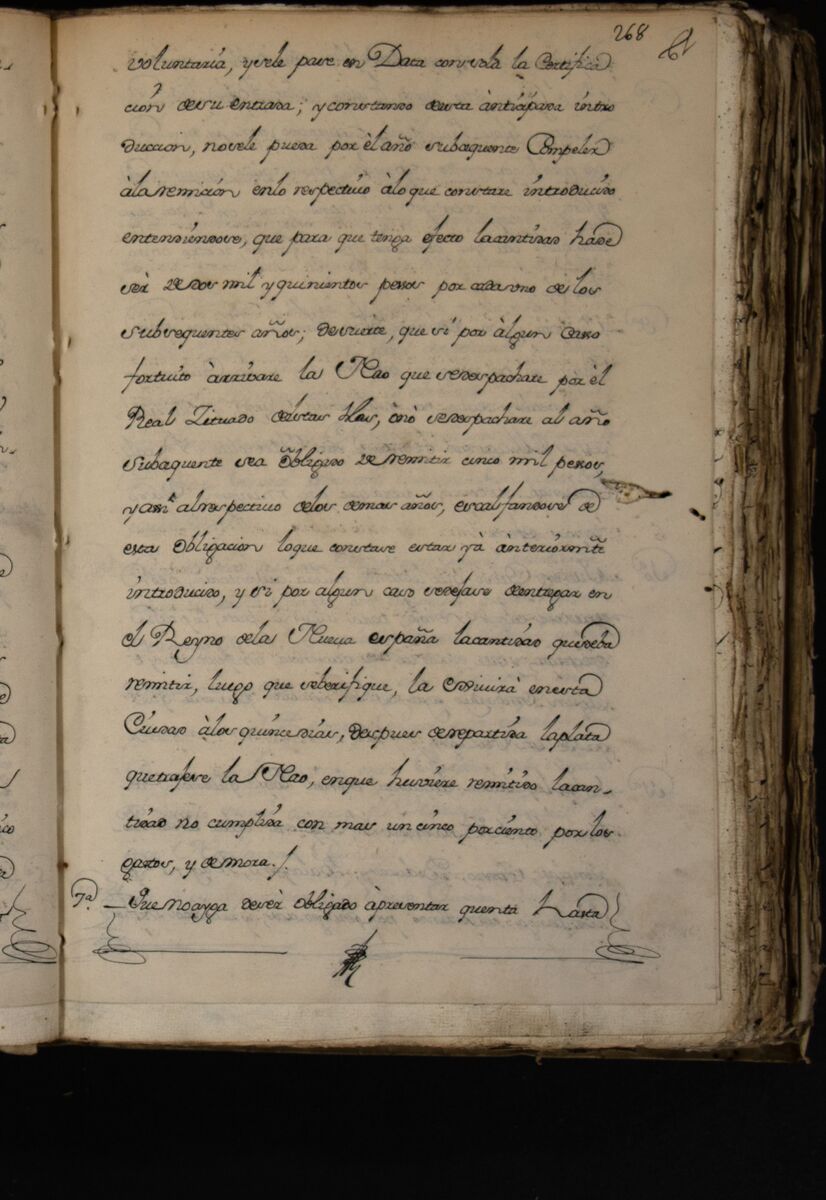 268
voluntaria, y se le pase en Data con sola la Certifica
ción de su entrada; y constando de esta àntizipada intro
duccion, no se le pueda por èl año subsequente Compeler
à la remision en lo respectivo à lo que constare introducido
entendiendose, que para que tenga efecto la cantidad hà de
sèr de dos mil y quinientos pesos por cada uno de los
subsequentes años; de suerte, que si por àlgun Caso
fortuito àrribare la Nao que se despachare por èl
Real Zituado de estas Yslas, ò nò se despachare al año
subsequente sea Òbligado de remitir cinco mil pesos,
y assi al respectivo de los demas años, escalfandose de
esta Obligacion lo que constare estar yà ànteriormte
introducido, y si por algun caso se dejase de entregar en
el Reyno de la Nueva españa la cantidad que deba
remitir, luego que se berifique, la exivirà en esta
Ciudad à los quince dias, despues de repartida la plata
que trajere la Nao, en que huviere remitido la can-
tidad no cumplida con mas un cinco por ciento por los
gastos, y demora./.
7ª. Que no ayga de sèr Obligado à presentar quenta hasta